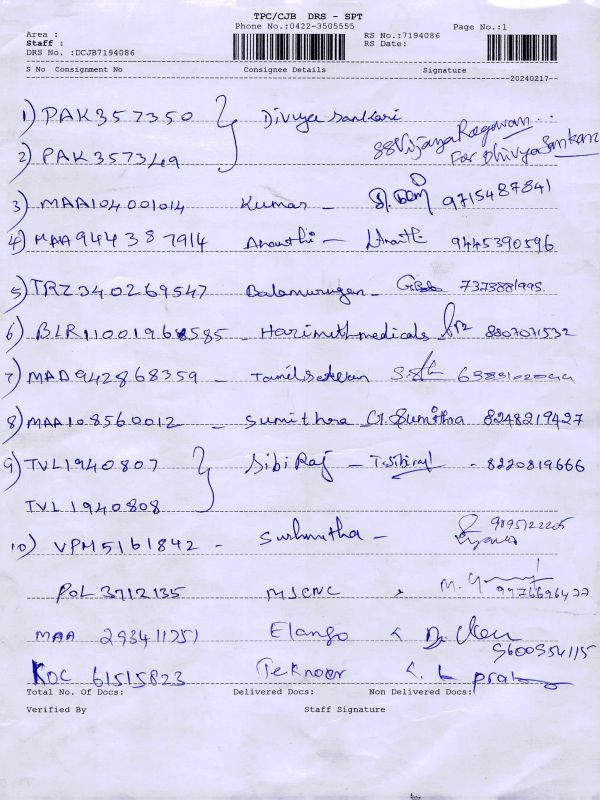 TPC/CJB DRS - SPT
Phone No.:0422-3505555
Page No.:1
Area :
RS No.:7194086
Staff :
RS Date:
DRS No. :DCJB7194086
S No Consignment No Consignee Details Signature
20240217--
1) PAK357350 } Divya Sankari
2) PAK357349 SSVijaya Ragavan For Dhivya Sankari
3) MAA104001014 Kumar - 9715487841
4) MAA944387914 Ananthi - 9445390596
5) TRZ340269547 Balamurugan -
6) BLR11001968585 - Harinithmedicals 8807071532
7) MAD942868359 -
8) MAA108560012 - Sumithra G. Sumithra 8248219427
9) TVL1940807 } Sibi Raj - T. Sibiraj - 8220819666
TVL1940808
10) VPM5161842 - Sushmitha -
POL3712135 M.
MAA 293411251 Elango 9600954115
KOC 61515823 Teknoer
Total No. Of Docs: Delivered Docs: Non Delivered Docs:
Verified By Staff Signature